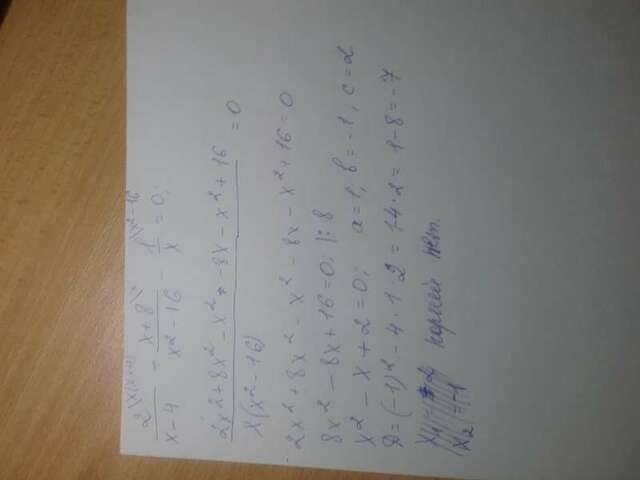 2 |x(x+4) / x-4 - x+8 |x / x²-16 - 1 |x²-16 / x = 0;
2x²+8x²-x²-8x-x²+16 / x(x²-16) = 0
2x²+8x²-x²-8x-x²+16=0
8x²-8x+16=0; |:8
x²-x+2=0; a=1, b=-1, c=2
D=(-1)²-4·1·2=1-4·2=1-8=-7
корней нет.
x₂=-1